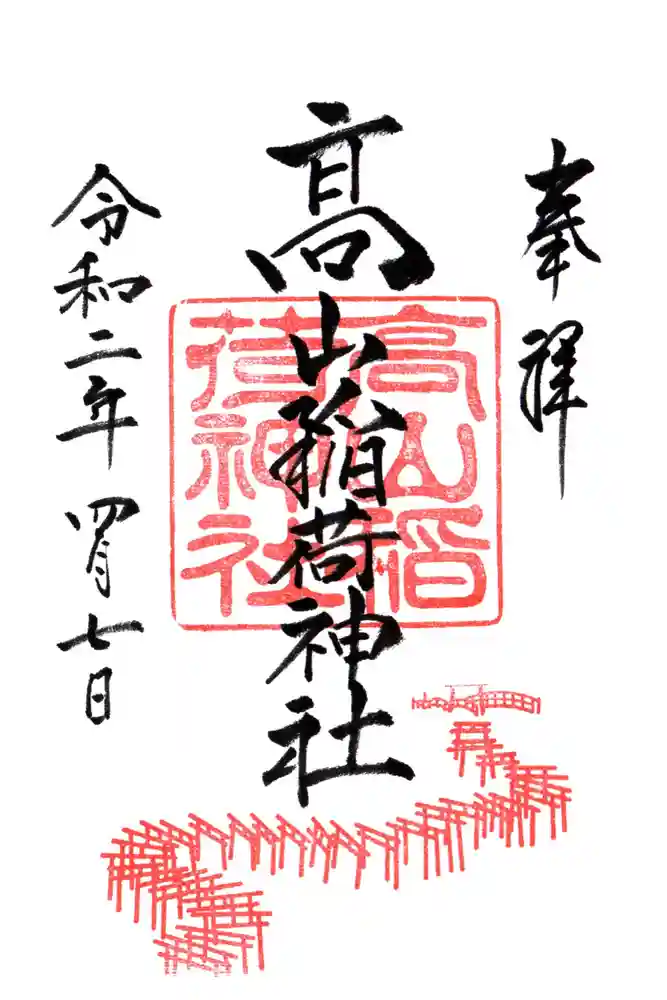 奉拝
高山稲荷神社
高山稲
荷神社
令和二年四月七日